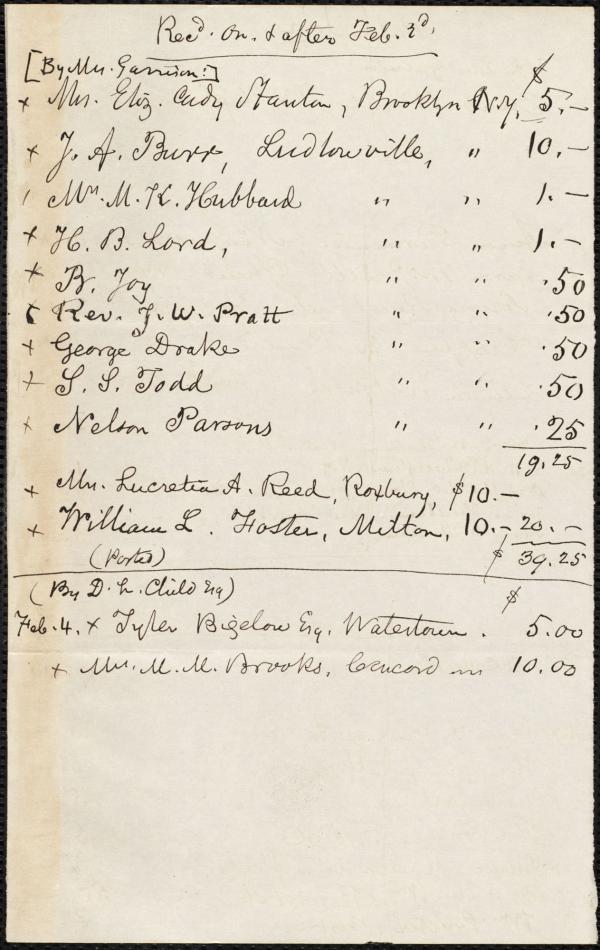 Rec'd. on & after Feb. 3d.
[By Mr. Garrison:] $
x Mrs. Eliz. Cady Stanton, Brooklyn N.Y. 5.—
x J. A. Burr, Ludlowville, " 10.—
/ Mrs. M. K. Hubbard " " 1.—
x H. B. Lord, " " 1.—
x B. Joy " " .50
Rev. J. W. Pratt " " .50
+ George Drake " " .50
+ S. S. Todd " " .50
x Nelson Parsons " " .25
19.25
x Mrs. Lucretia A. Reed, Roxbury, $10.—
x William L. Foster, Milton, 10.— 20.—
(Posted) $ 39.25
(By D. L. Child Esq) $
Feb. 4. x Tyler Bigelow Esq. Watertown. 5.00
x Mrs. M. M. Brooks, Concord 10.00